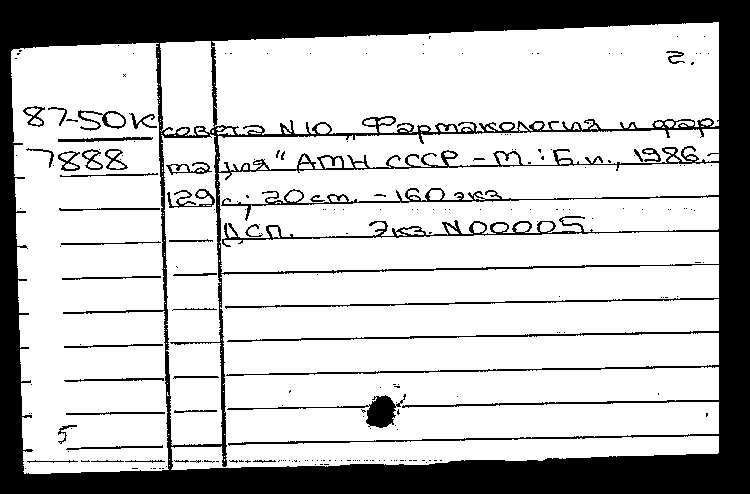 2.
87-50к совета N 10 „Фармакология и фар-
7888 мация" АМН СССР – М.: Б.и., 1986.–
129 с.; 20 cm. – 160 экз.
ДСП. Экз. N 00005.
5